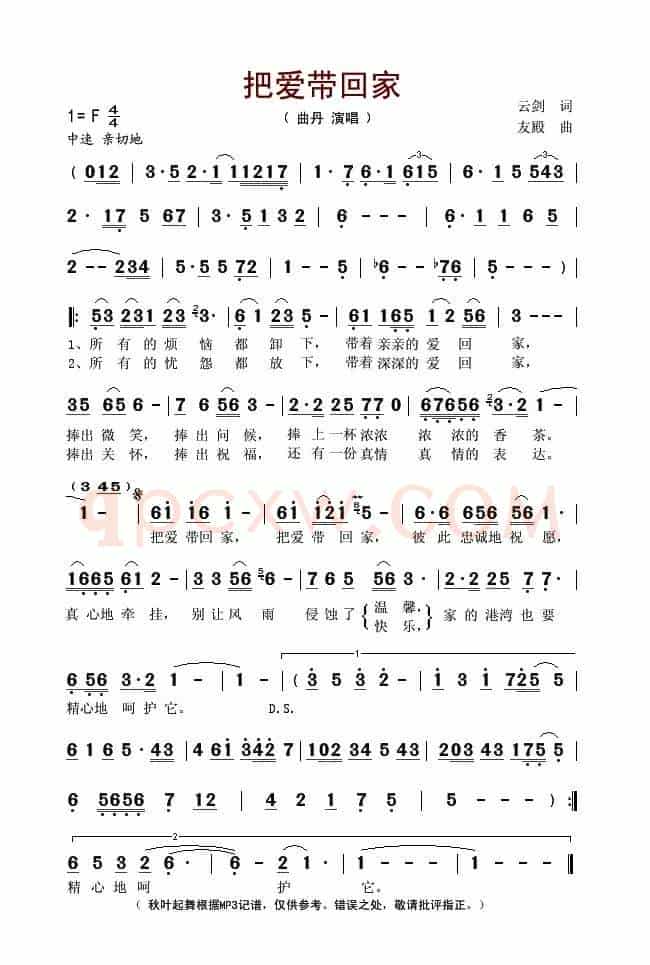 把爱带回家
( 曲丹 演唱 )
1= F 4/4
云剑 词
中速 亲切地
友殿 曲
( 012 | 3·5 2·1 11217 | 1·7 6·1 615 | 6·1 5 543 |
2· 17 5 67 | 3·5 132 | 6 - - - | 6·1 1 6 5 |
2 - - 234 | 5·5 5 72 | 1 - - 5 | ♭6 - - ♭76 | 5 - - - )|
‖: 53 231 23 3· | 6 1 23 5 - | 61 165 12 56 | 3 - - - |
1、所有的烦恼都卸下，带着亲亲的爱回家，
2、所有的忧怨都放下，带着深深的爱回家，
35 65 6 - | 7 6 56 3 | 2·2 25 77 0 | 67656 3·2 1 - |
捧出微笑，捧出问候，捧上一杯浓浓浓浓的香茶。
捧出关怀，捧出祝福，还有一份真情真情的表达。
(3 45)
1 - | 61 16 6 - | 61 121 5 - | 6 6 656 56 1 |
qpcxw.COM
把爱带回家，把爱带回家，彼此忠诚地祝愿，
1665 61 2 - | 3 3 56 6 - | 7 65 56 3 | 2·2 25 7 7 |
真心地牵挂，别让风雨侵蚀了{温馨，}家的港湾也要
快乐，
1
6 56 3·2 1 - | 1 - - - | ( 3 5 3 5 | 3 1 725 5 |
精心地呵护它。 D.S.
6 2· 5 43 | 4 61 342 7 | 102 34 5 43 | 203 43 175 5 |
6 5656 7 12 | 4 2 1 7 5 | 5 - - - ) :‖
2
6 5 3 2 6· | 6 - 2 1 | 1 - - - | 1 - - - ‖
精心地呵护它。
( 秋叶起舞根据MP3记谱，仅供参考。错误之处，敬请批评指正。)